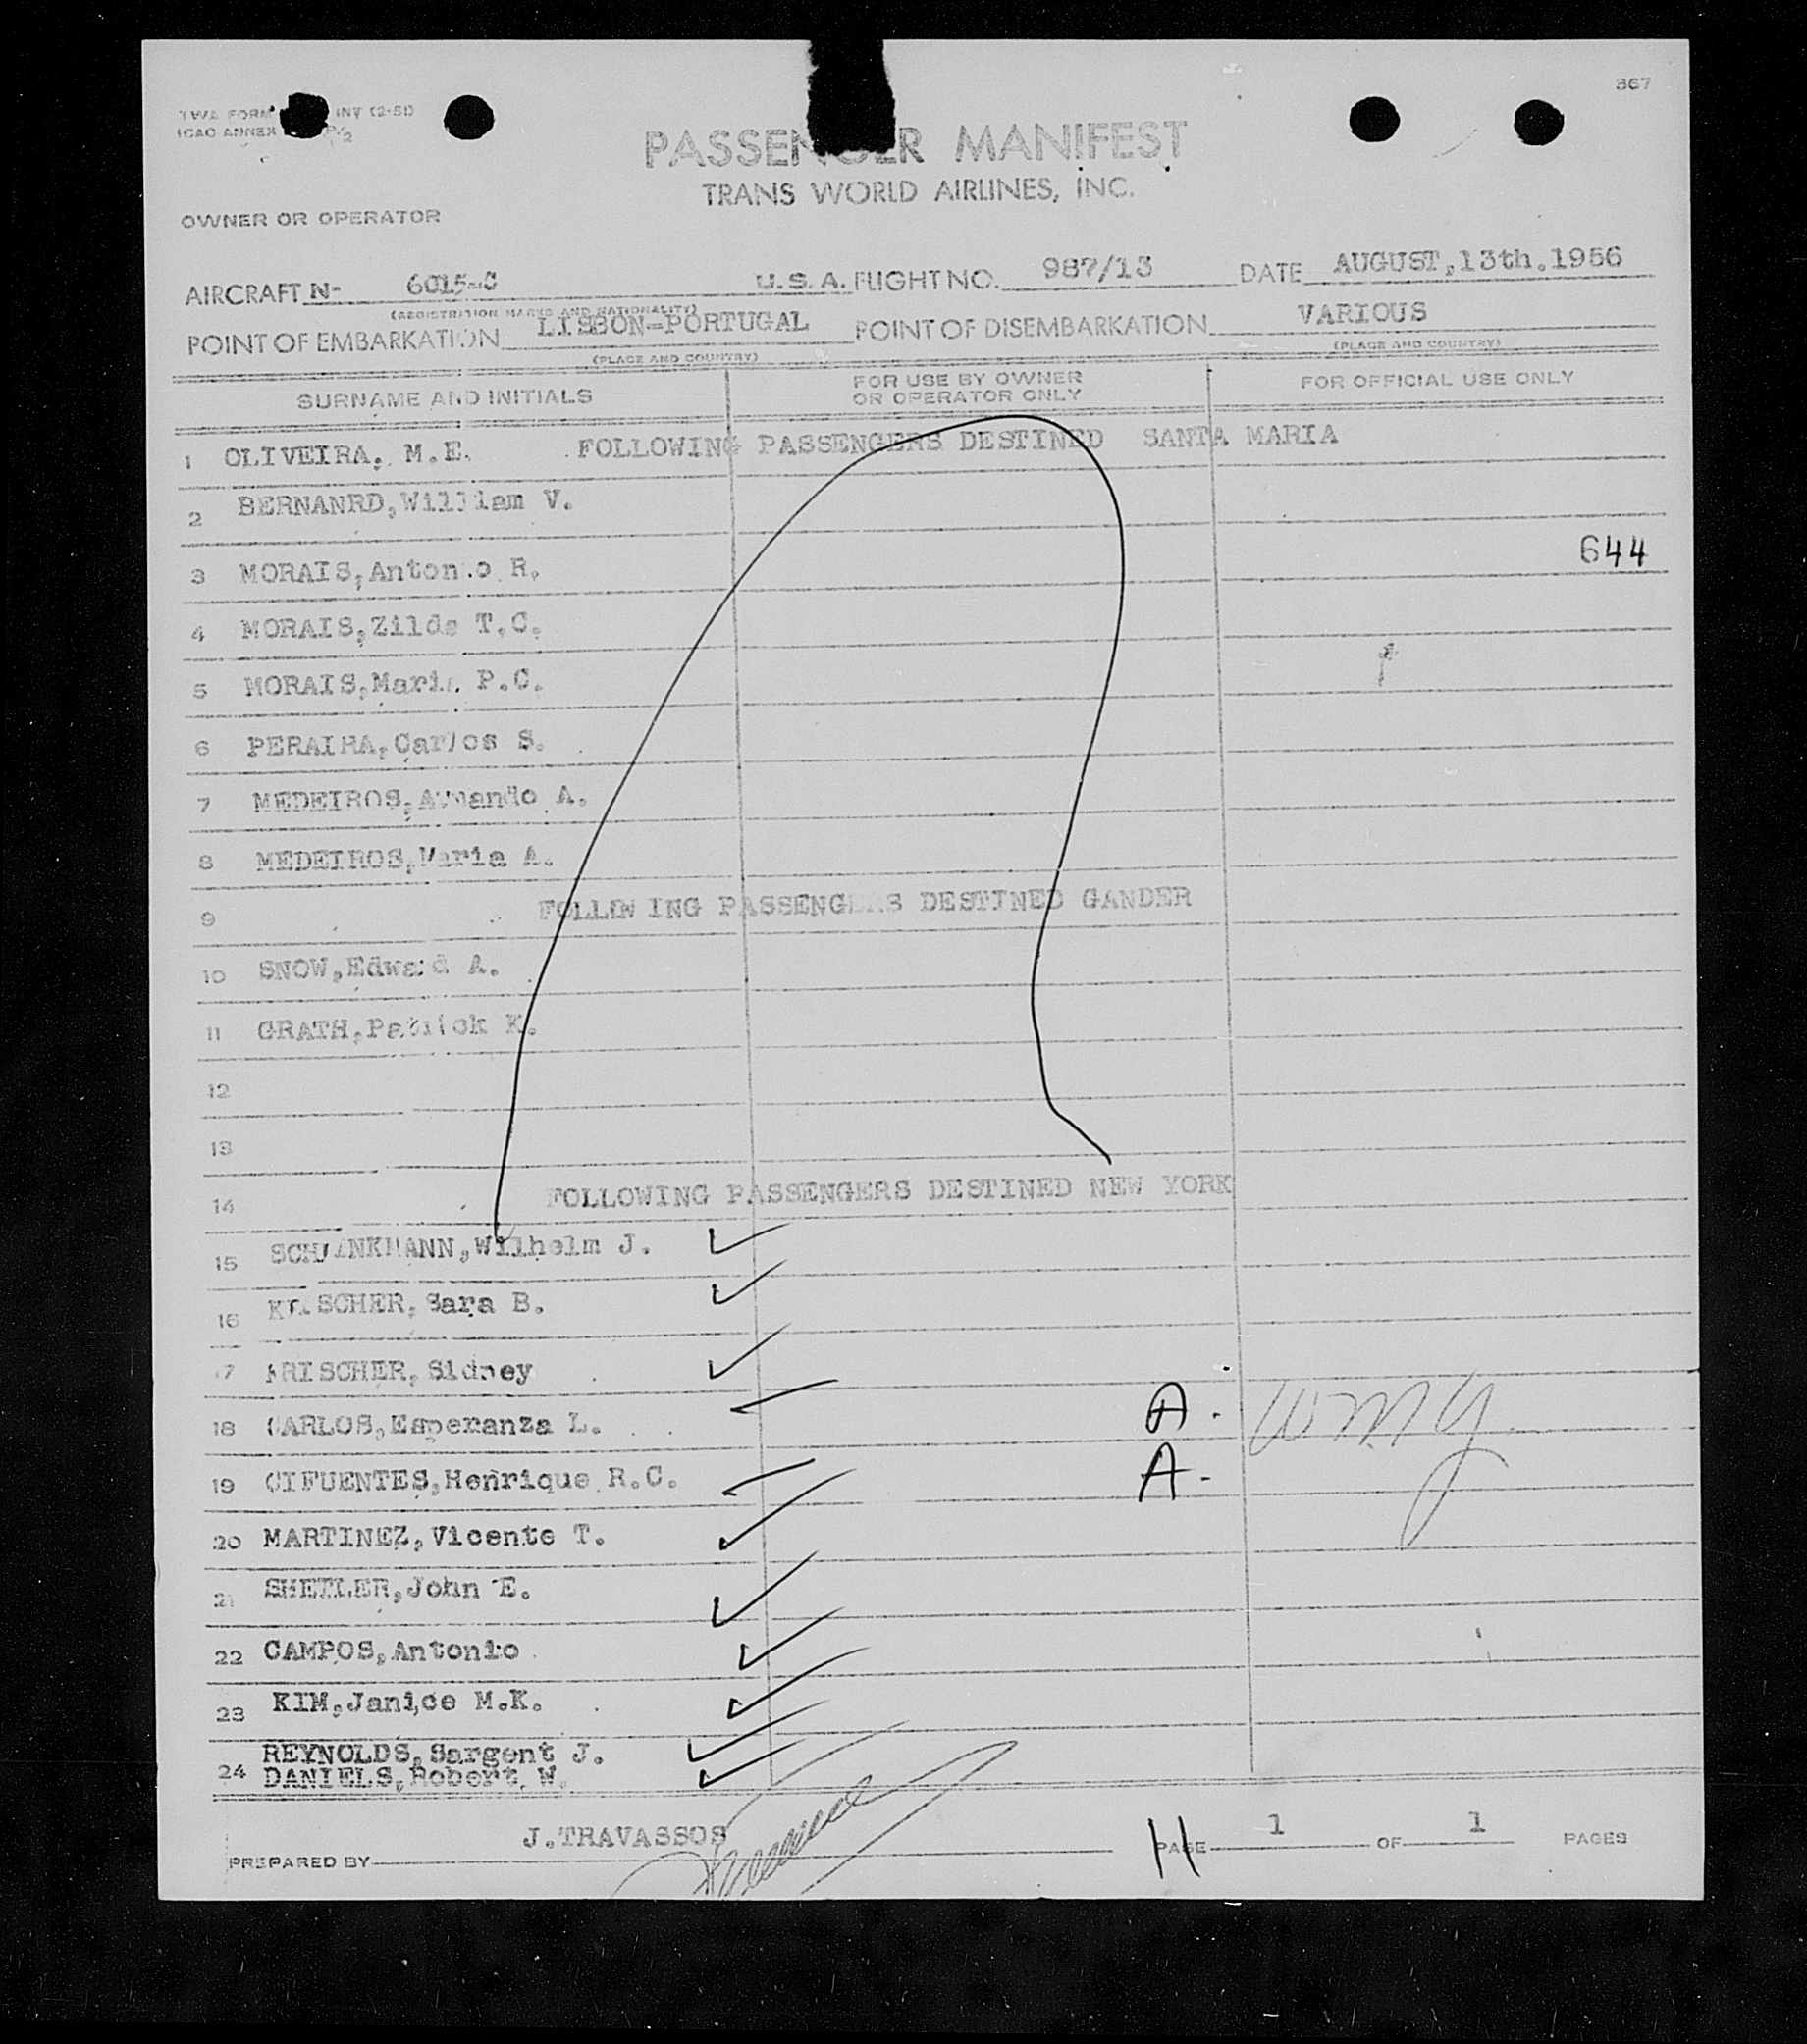 867
TWA FORM INT (2-51)
ICAO ANNEX
PASSENGER MANIFEST
TRANS WORLD AIRLINES, INC.
OWNER OR OPERATOR
AIRCRAFT N- 6015-C U.S.A. FLIGHT NO. 987/13 DATE AUGUST,13th.1956
(REGISTRATION MARKS AND NATIONALITY)
POINT OF EMBARKATION LISBON-PORTUGAL POINT OF DISEMBARKATION VARIOUS
(PLACE AND COUNTRY) (PLACE AND COUNTRY)
SURNAME AND INITIALS FOR USE BY OWNER OR OPERATOR ONLY FOR OFFICIAL USE ONLY
1 OLIVEIRA, M.E. FOLLOWING PASSENGERS DESTINED SANTA MARIA
2 BERNANRD,William V.
3 MORAIS,Antonio R. 644
4 MORAIS,Zilda T.C.
5 MORAIS,Maria P.C.
6 PERAIRA,Carlos S.
7 MEDEIROS,Armando A.
8 MEDEIROS,Maria A.
9 FOLLOWING PASSENGERS DESTINED GANDER
10 SNOW,Edward A.
11 GRATH,Patrick K.
12
13
14 FOLLOWING PASSENGERS DESTINED NEW YORK
15 Wilhelm J.
16 Sara B.
17 KRISCHER,Sidney
18 CARLOS,Esperanza L. A.
19 CIFUENTES,Henrique R.C. A.
20 MARTINEZ,Vicente T.
21 SHETLER,John E.
22 CAMPOS,Antonio
23 KIM,Janice M.K.
24 REYNOLDS,Sargent J.
DANIELS,Robert W.
PREPARED BY J.TRAVASSOS PAGE 1 OF 1 PAGES